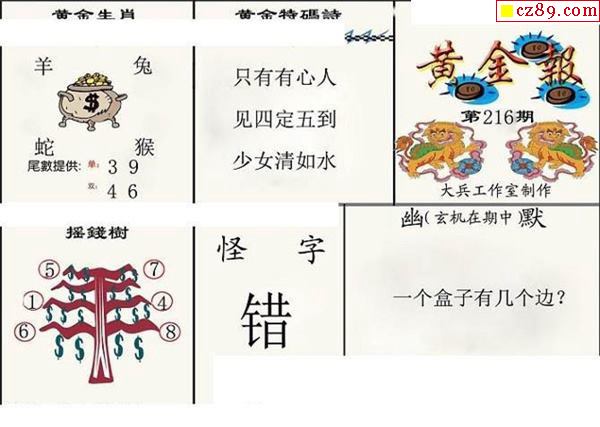 cz89.com
黄金生肖
羊 兔
$
蛇 猴
尾數提供: 单: 3 9
双: 4 6
黄金特碼詩
只有有心人
见四定五到
少女清如水
黄金報
第216期
大兵工作室制作
摇錢樹
⑤ ⑦
① ④
⑥ ⑧
怪 字
错
幽(玄机在期中)默
一个盒子有几个边?